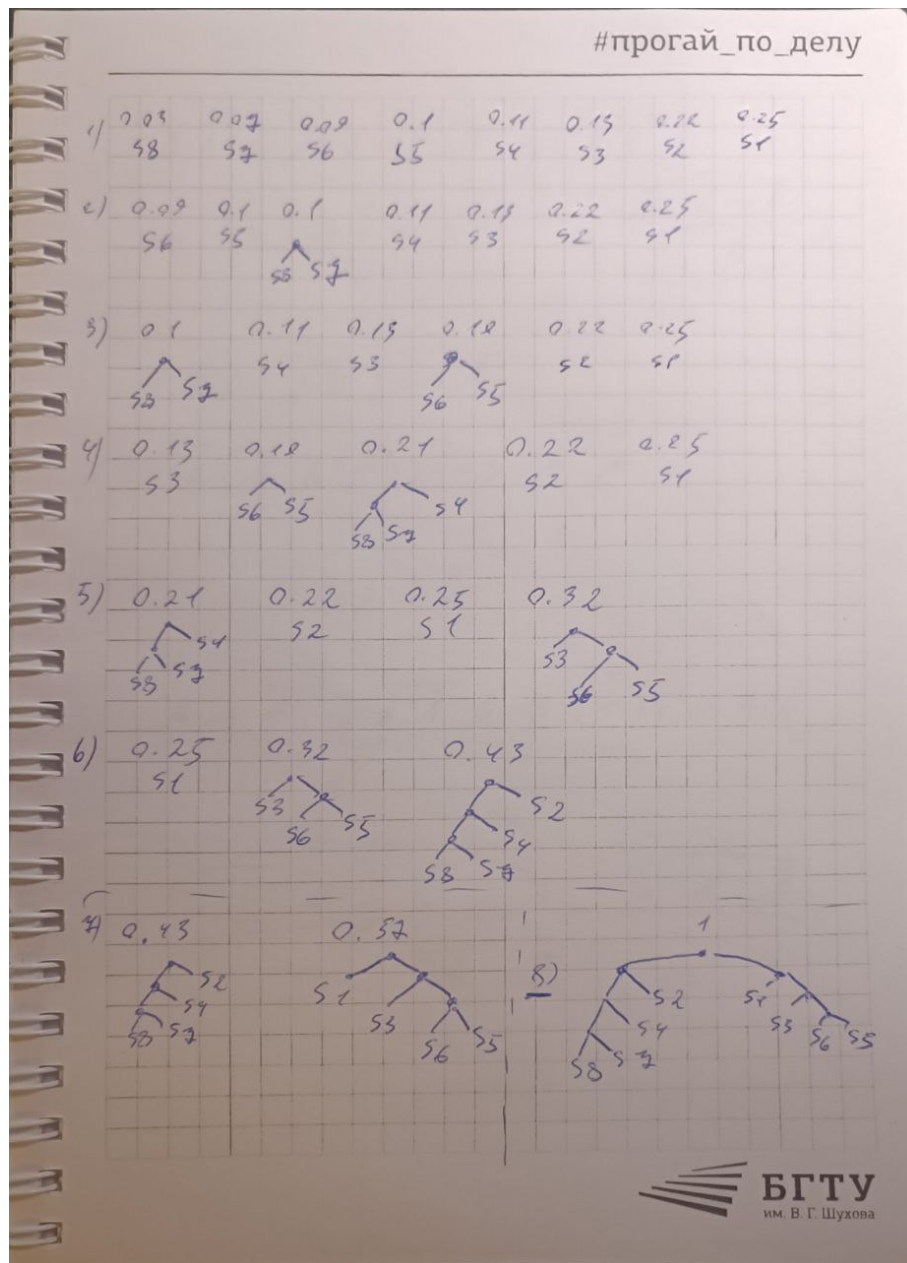 #прогай_по_делу
1) 0.03 0.07 0.09 0.1 0.11 0.13 0.22 0.25
S8 S7 S6 S5 S4 S3 S2 S1
2) 0.09 0.1 0.1 0.11 0.13 0.22 0.25
S6 S5 S4 S3 S2 S1
S8 S7
3) 0.1 0.11 0.13 0.19 0.22 0.25
S4 S3 S2 S1
S8 S7 S6 S5
4) 0.13 0.19 0.21 0.22 0.25
S3 S2 S1
S6 S5 S4
S8 S7
5) 0.21 0.22 0.25 0.32
S2 S1
S4 S3
S8 S7 S6 S5
6) 0.25 0.32 0.43
S1
S3 S2
S6 S5 S4
S8 S7
7) 0.43 0.57
S2 S1
S4 S3
S8 S7 S6 S5
8) 1
S2 S1
S4 S3
S8 S7 S6 S5
БГТУ
им. В. Г. Шухова